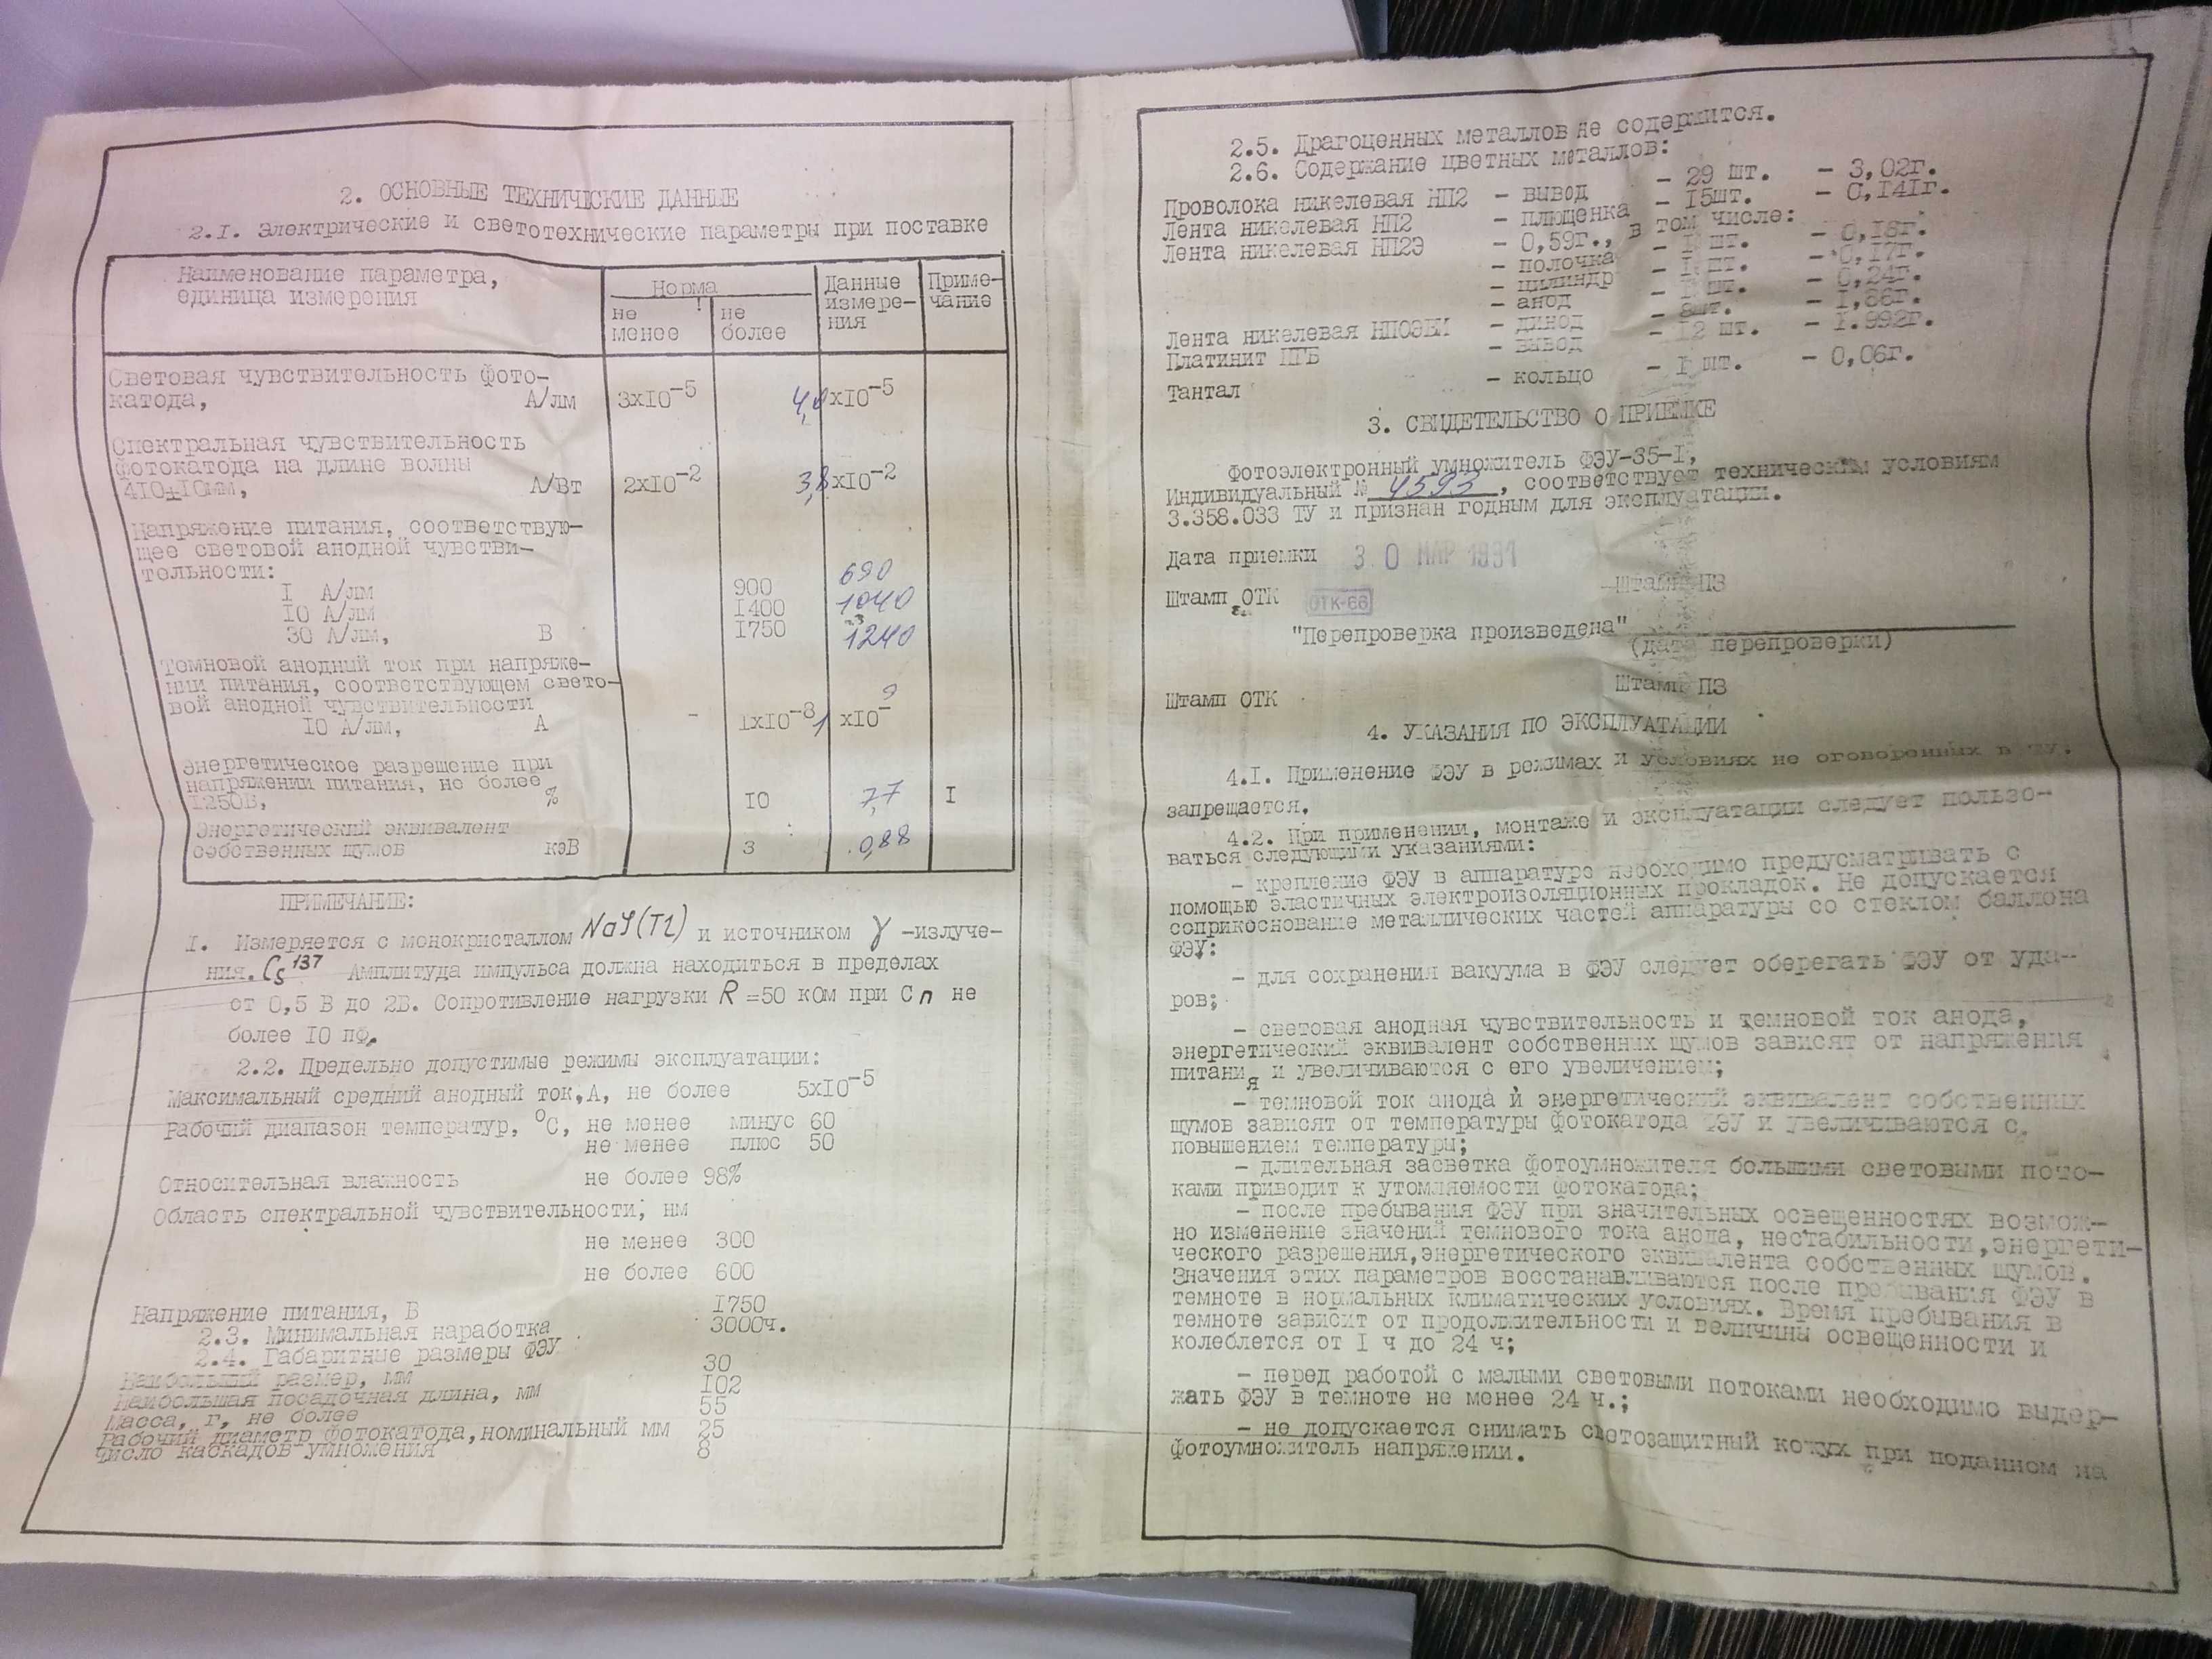 2. ОСНОВНЫЕ ТЕХНИЧЕСКИЕ ДАННЫЕ
2.I. Электрические и светотехнические параметры при поставке
Наименование параметра, единица измерения
Норма
не менее
не более
Данные измере-
ния
Приме-
чание
Световая чувствительность фото-
катода, А/лм 3хI0⁻⁵ 4,0хI0⁻⁵
Спектральная чувствительность
фотокатода на длине волны
4I0±I0мм, А/Вт 2хI0⁻² 3,8хI0⁻²
Напряжение питания, соответствую-
щее световой анодной чувстви-
тельности:
I А/лм 900 690
I0 А/лм I400 1040
30 А/лм, В I750 1240
Темновой анодный ток при напряже-
нии питания, соответствующем свето-
вой анодной чувствительности
I0 А/лм, А - IхI0⁻⁸ 1 хI0⁻⁹
Энергетическое разрешение при
напряжении питания, не более
I250В, % I0 7,7 I
Энергетический эквивалент
собственных шумов кэВ 3 0,88
ПРИМЕЧАНИЕ:
I. Измеряется с монокристаллом NaJ(Tl) и источником γ -излуче-
ния. Cs¹³⁷ Амплитуда импульса должна находиться в пределах
от 0,5 В до 2В. Сопротивление нагрузки R =50 кОм при Сп не
более I0 пФ.
2.2. Предельно допустимые режимы эксплуатации:
Максимальный средний анодный ток,А, не более 5хI0⁻⁵
Рабочий диапазон температур, ⁰С, не менее минус 60
не менее плюс 50
Относительная влажность не более 98%
Область спектральной чувствительности, нм
не менее 300
не более 600
Напряжение питания, В I750
2.3. Минимальная наработка 3000ч.
2.4. Габаритные размеры ФЭУ
Наибольший размер, мм 30
Наибольшая посадочная длина, мм I02
Масса, г, не более 55
Рабочий диаметр фотокатода,номинальный мм 25
Число каскадов умножения 8
2.5. Драгоценных металлов не содержится.
2.6. Содержание цветных металлов:
Проволока никелевая НП2 - вывод - 29 шт. - 3,02г.
Лента никелевая НП2 - плющенка - I5шт. - 0,I4Iг.
Лента никелевая НП2Э - 0,59г., в том числе:
- полочка - I шт. - 0,I8г.
- цилиндр - I шт. - 0,I7г.
- анод - I шт. - 0,24г.
Лента никелевая - динод - 8шт. - I,66г.
Платинит - вывод - I2 шт. - I.992г.
Тантал - кольцо - I шт. - 0,06г.
3. СВИДЕТЕЛЬСТВО О ПРИЕМКЕ
Фотоэлектронный умножитель ФЭУ-35-I,
Индивидуальный № 4593, соответствует техническим условиям
3.358.033 ТУ и признан годным для эксплуатации.
Дата приемки 30 МАР 1991
Штамп ОТК ОТК-66 Штамп ПЗ
"Перепроверка произведена"
(дата перепроверки)
Штамп ОТК Штамп ПЗ
4. УКАЗАНИЯ ПО ЭКСПЛУАТАЦИИ
4.I. Применение ФЭУ в режимах и условиях не оговоренных в ТУ,
запрещается.
4.2. При применении, монтаже и эксплуатации следует пользо-
ваться следующими указаниями:
- крепление ФЭУ в аппаратуре необходимо предусматривать с
помощью эластичных электроизоляционных прокладок. Не допускается
соприкоснование металлических частей аппаратуры со стеклом баллона
ФЭУ:
- для сохранения вакуума в ФЭУ следует оберегать ФЭУ от уда-
ров;
- световая анодная чувствительность и темновой ток анода,
энергетический эквивалент собственных шумов зависят от напряжения
питания и увеличиваются с его увеличением;
- темновой ток анода и энергетический эквивалент собственных
шумов зависят от температуры фотокатода ФЭУ и увеличиваются с
повышением температуры;
- длительная засветка фотоумножителя большими световыми пото-
ками приводит к утомляемости фотокатода;
- после пребывания ФЭУ при значительных освещенностях возмож-
но изменение значений темнового тока анода, нестабильности,энергети-
ческого разрешения,энергетического эквивалента собственных шумов.
Значения этих параметров восстанавливаются после пребывания ФЭУ в
темноте в нормальных климатических условиях. Время пребывания в
темноте зависит от продолжительности и величины освещенности и
колеблется от I ч до 24 ч;
- перед работой с малыми световыми потоками необходимо выдер-
жать ФЭУ в темноте не менее 24 ч.;
- не допускается снимать светозащитный кожух при поданном на
фотоумножитель напряжении.